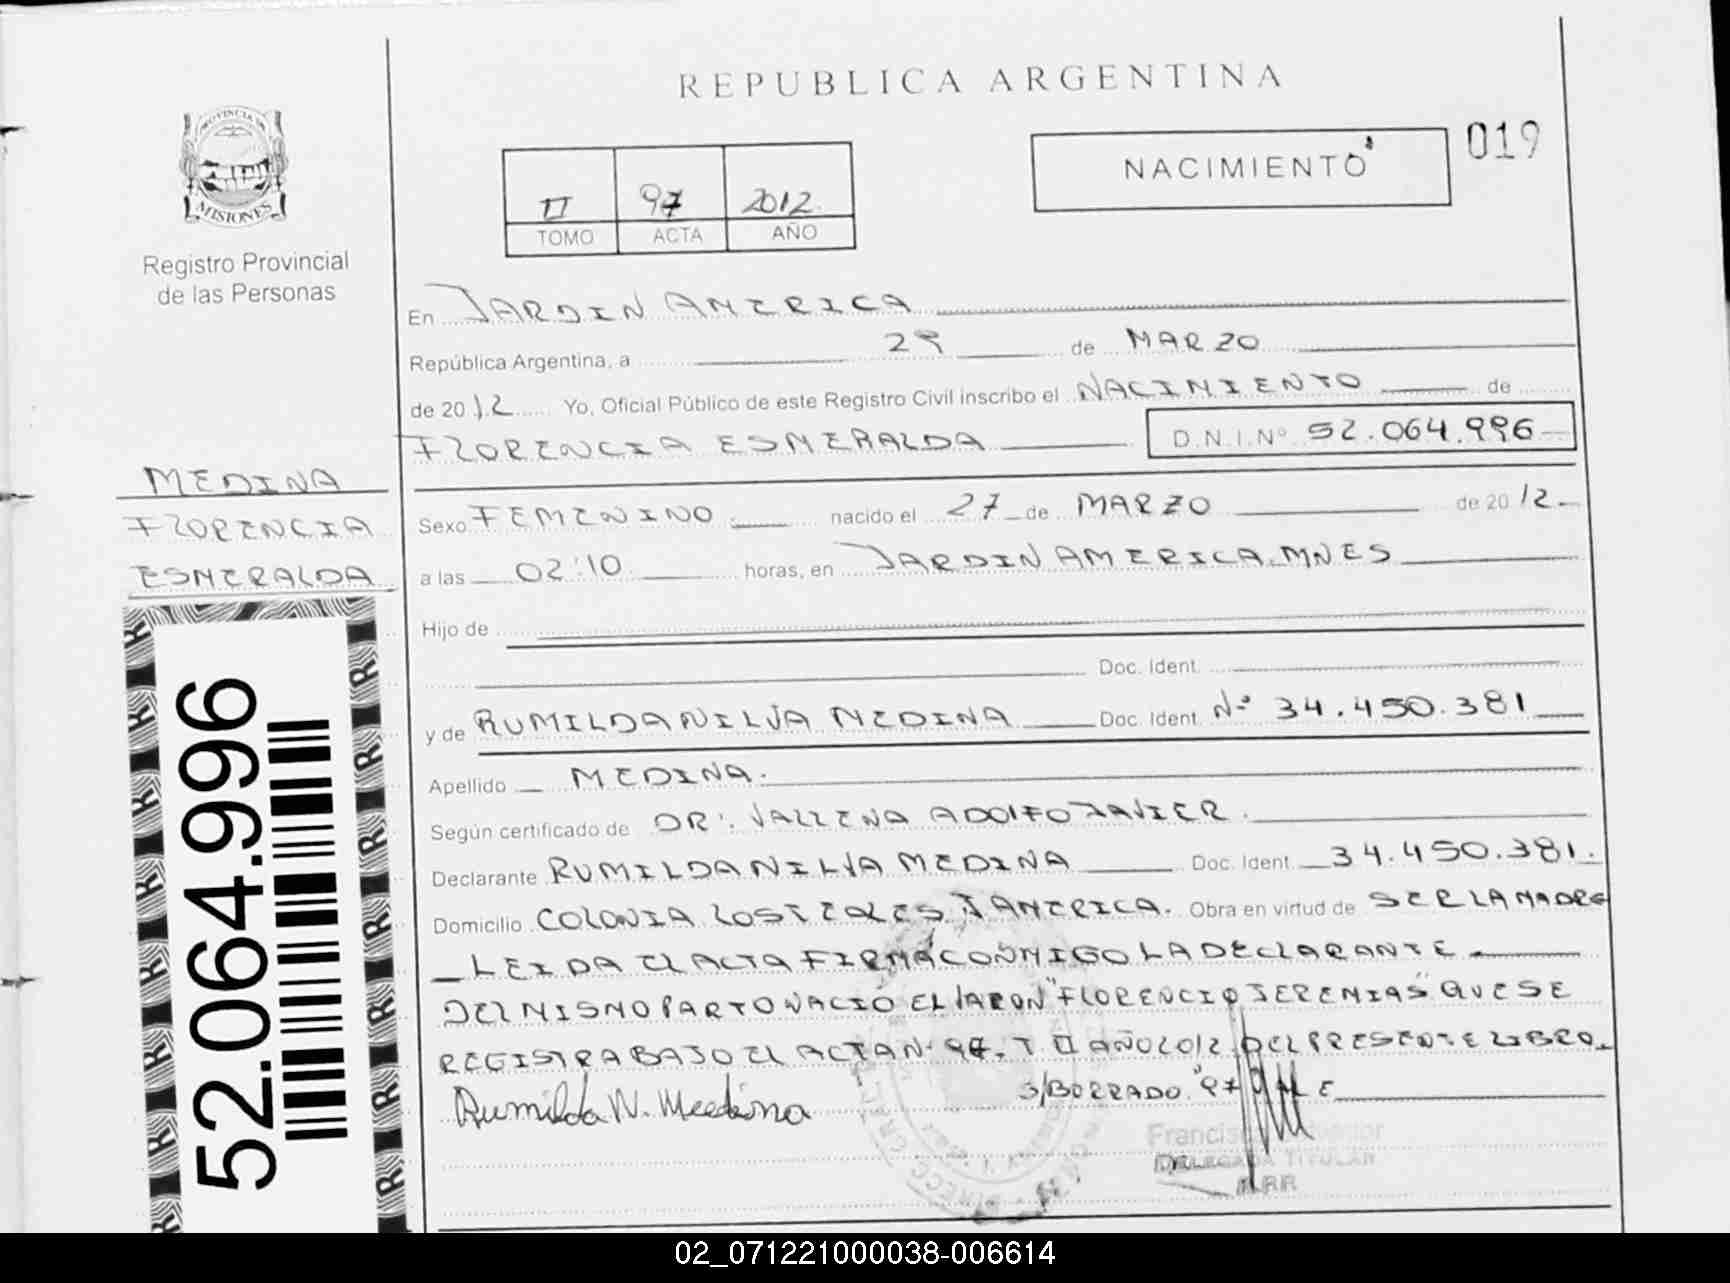 REPUBLICA ARGENTINA
019
NACIMIENTO
II 97 2012
TOMO ACTA AÑO
PROVINCIA DE
MISIONES
Registro Provincial
de las Personas
MEDINA
FLORENCIA
ESMERALDA
52.064.996
En JARDIN AMERICA
República Argentina, a 29 de MARZO
de 2012 Yo, Oficial Público de este Registro Civil inscribo el NACIMIENTO de
FLORENCIA ESMERALDA D.N.I.Nº 52.064.996
Sexo FEMENINO nacido el 27 de MARZO de 2012
a las 02:10 horas, en JARDIN AMERICA. MNES
Hijo de
Doc. Ident.
y de RUMILDA NILVA MEDINA Doc. Ident. Nº 34.450.381
Apellido MEDINA.
Según certificado de DR. VALLENA ADOLFO JAVIER.
Declarante RUMILDA NILVA MEDINA Doc. Ident. 34.450.381.
Domicilio COLONIA J AMERICA. Obra en virtud de SER LA MADRE
LEIDA EL ACTA FIRMA CONMIGO LA DECLARANTE
DEL MISMO PARTO NACIÓ EL VARON "FLORENCIO JEREMIAS" QUE SE
REGISTRA BAJO EL ACTA Nº T II AÑO 2012 DEL PRESENTE LIBRO.
Rumilda N. Medina
S/BORRADO "97" VALE
DELEGADA TITULAR
02_071221000038-006614